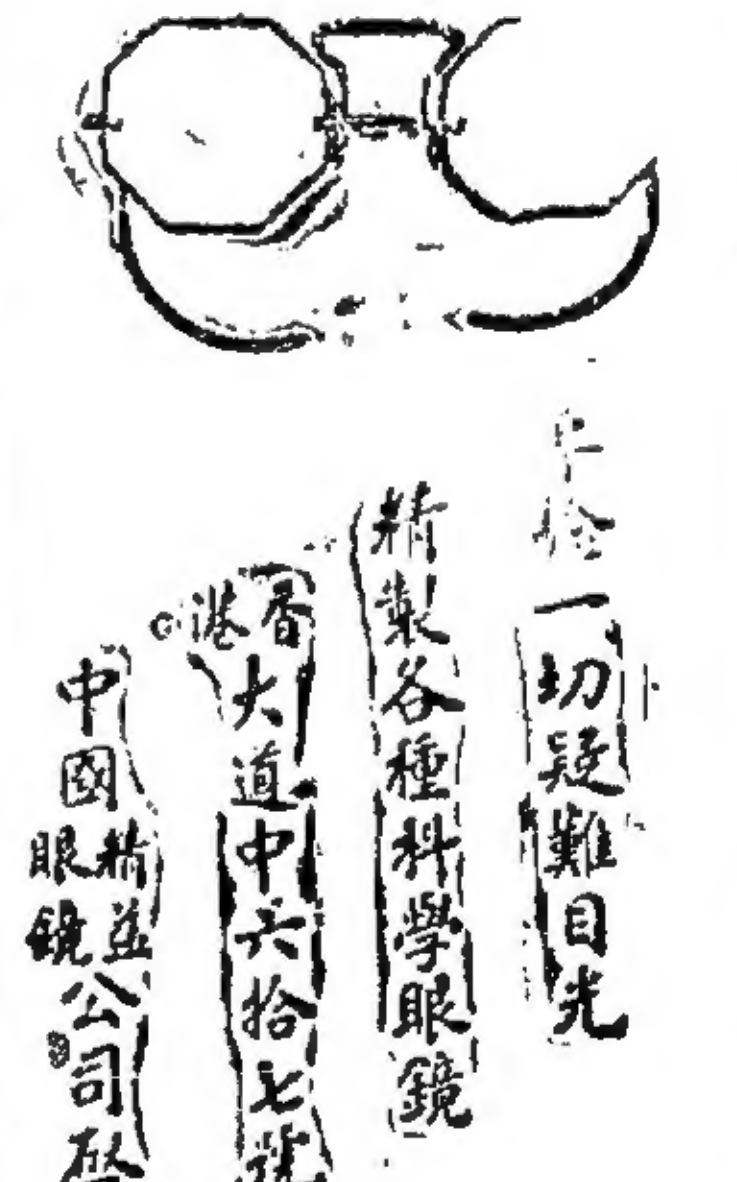 一切疑難目光
精製各種科學眼鏡
香港大道中六拾七號
中國精益眼鏡公司